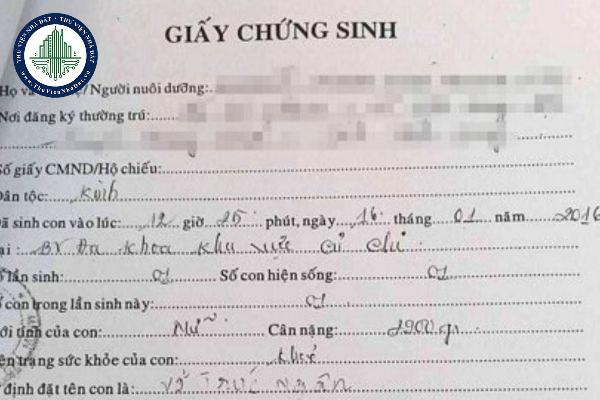 THƯ VIỆN NHÀ ĐẤT
www.ThuVienNhaDat.vn
GIẤY CHỨNG SINH
Họ và /Người nuôi dưỡng:
Nơi đăng ký thường trú:
Số giấy CMND/Hộ chiếu:
Dân tộc: Kinh
Đã sinh con vào lúc: 12 giờ 25 phút, ngày 16 tháng 01 năm 2016
ại : BV Đa khoa khu vực Củ Chi
ố lần sinh: 01 Số con hiện sống: 01
ố con trong lần sinh này: 01
ới tính của con: Nữ Cân nặng: 2900 gr
ện trạng sức khỏe của con: khoẻ
ự định đặt tên con là: Võ Trúc Ngân